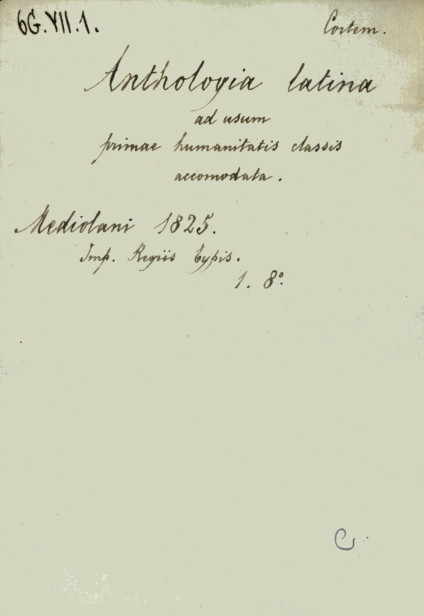 6G.VII.1.
Cortem.
Anthologia latina
ad usum
primae humanitatis classis
accomodata.
Mediolani 1825.
Imp. Regiis typis.
1. 8º.
C